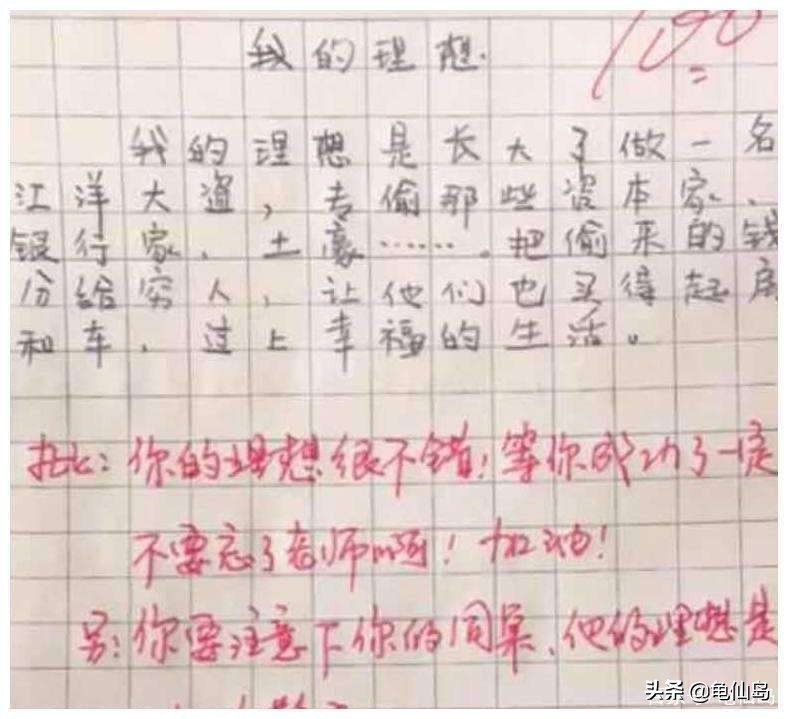 我的理想.
100
我的理想是长大了做一名
江洋大盗，专偷那些资本家、
银行家、土豪……。把偷来的钱
分给穷人，让他们也买得起房
和车，过上幸福的生活。
批：你的理想很不错！等你成功了一定
不要忘了老师啊！加油！
另：你要注意下你的同桌、他的理想是
头条 @龟仙岛